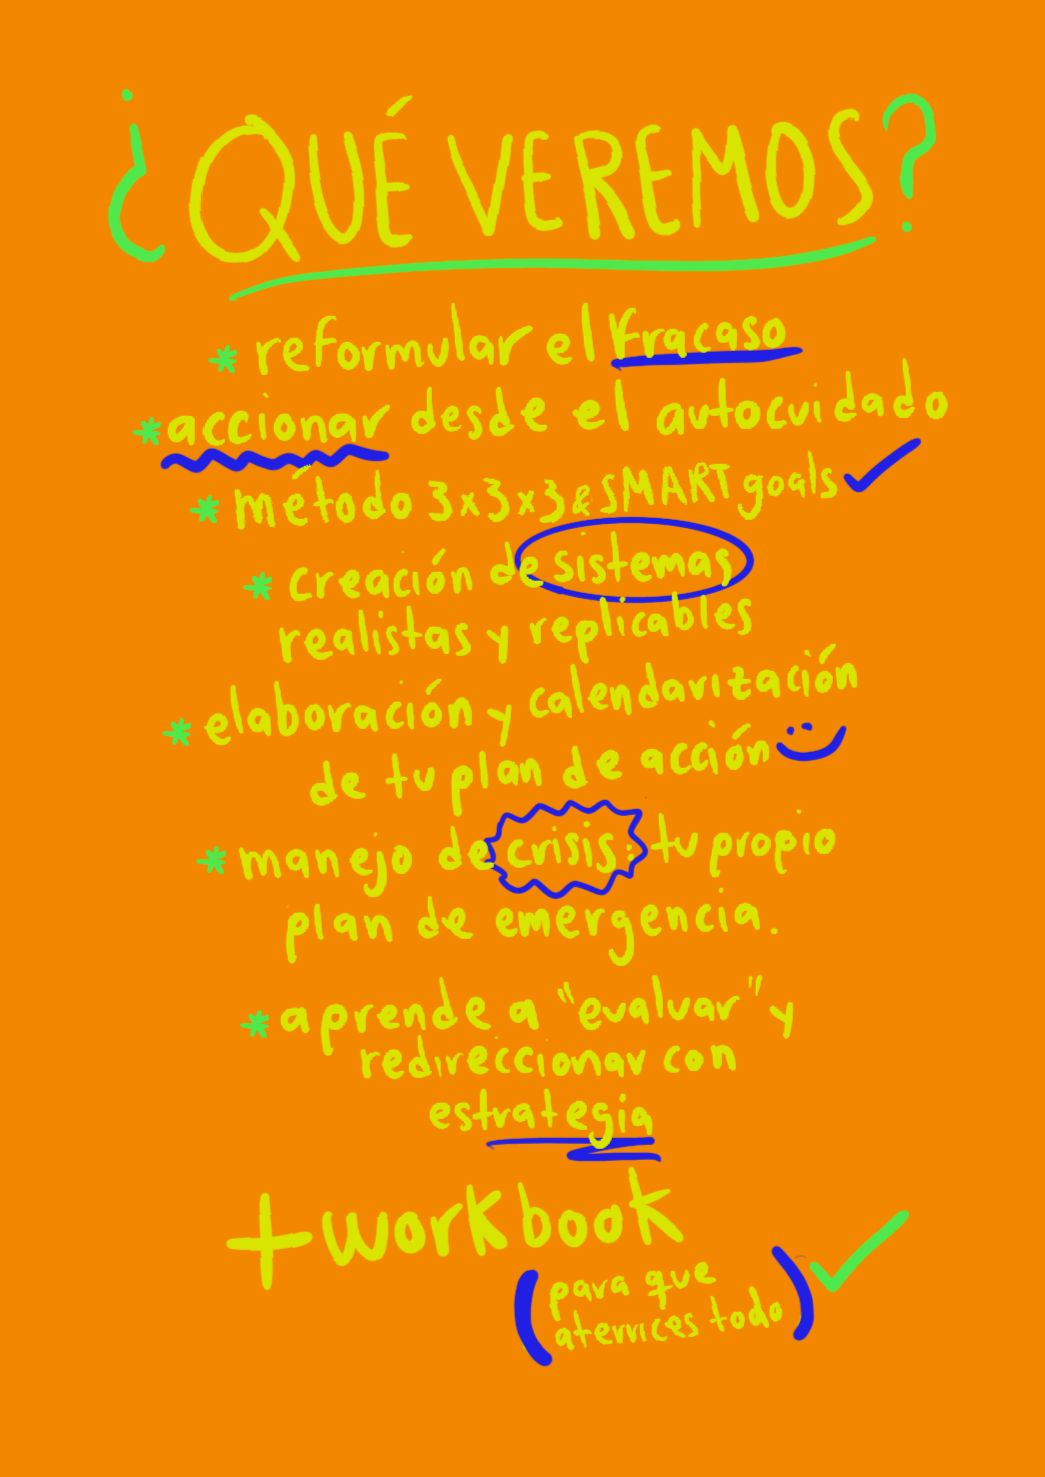 ¿QUÉ VEREMOS?
* reformular el fracaso
* accionar desde el autocuidado
* método 3x3x3 & SMART goals
* creación de sistemas
realistas y replicables
* elaboración y calendarización
de tu plan de acción
* manejo de crisis: tu propio
plan de emergencia.
* aprende a "evaluar" y
redireccionar con
estrategia
+workbook
(para que
aterrices todo)